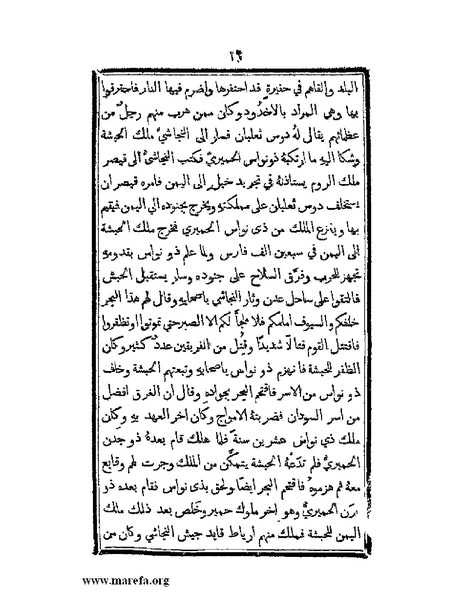 ١٢
البلد والقاهم في حفيرة قد احتفرها واضرم فيها النار فاحترقوا
بها وهي المراد بالاخدود وكان ممن هرب منهم رجل من
عظمائهم يقال له دوس ثعلبان فسار الى النجاشي ملك الحبشة
وشكا اليه ما ارتكبه ذونواس الحميري فكتب النجاشي الى قيصر
ملك الروم يستاذنه في تجريد خيل الى اليمن فامره قيصر ان
يستخلف دوس ثعلبان على مملكته ويخرج بجنوده الى اليمن فيقيم
بها وينزع الملك من ذي نواس الحميري فخرج ملك الحبشة
الى اليمن في سبعين الف فارس ولما علم ذو نواس بقدومه
تجهز للحرب وفرق السلاح على جنوده وسار يستقبل الحبش
فالتقوا على ساحل عدن وثار النجاشي باصحابه وقال لهم هذا البحر
خلفكم والسيوف امامكم فلا ملجأ لكم الا الصبر حتى تموتوا او تظفروا
فاقتتل القوم قتالا شديدا وقُتل من الفريقين عدد كثير وكان
الظفر للحبشة فانهزم ذو نواس باصحابه وتبعتهم الحبشة وخاف
ذو نواس من الاسر فاقتحم البحر بجواده وقال ان الغرق افضل
من اسر السودان فضربته الامواج وكان اخر العهد به وكان
ملك ذي نواس عشرين سنة فلما هلك قام بعده ذو جدن
الحميري فلم تدَعْهُ الحبشة يتمكن من الملك وجرت لهم وقايع
معه ثم هزموه فاقتحم البحر ايضا ولحق بذى نواس فقام بعده ذو
يزن الحميري وهو اخر ملوك حمير وخلص بعد ذلك ملك
اليمن للحبشة فملك منهم ارياط قايد جيش النجاشي وكان من
www.marefa.org